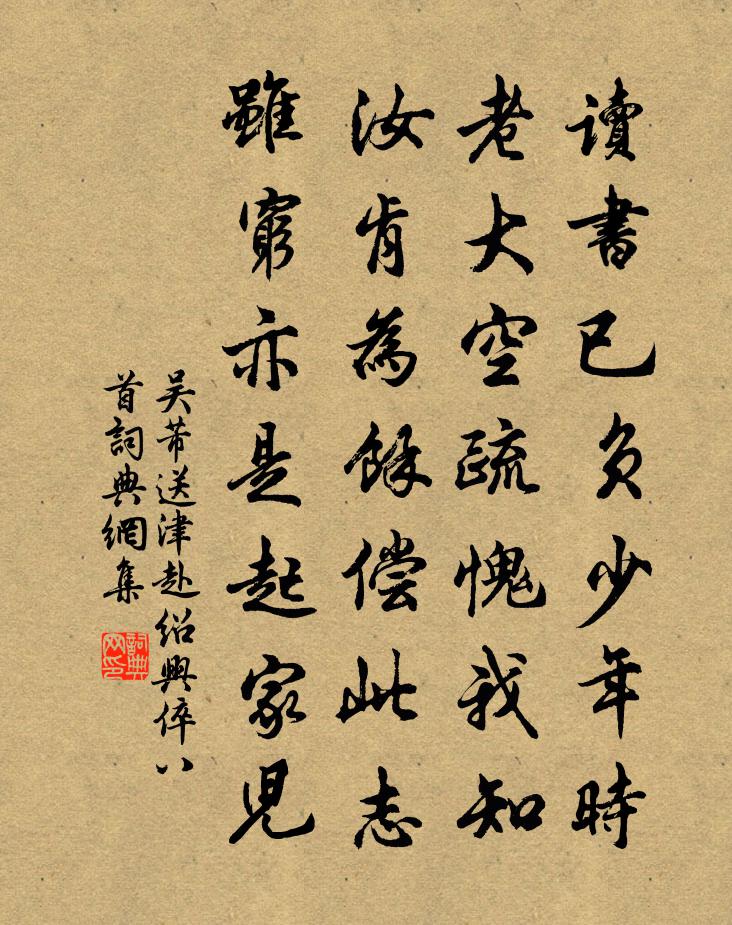 讀書已負少年時
老大空疏愧我知
汝肯為餘償此志
雖窮亦是起家兒
吴芾送津赴紹興倅八
首詞典網集
詞典网印